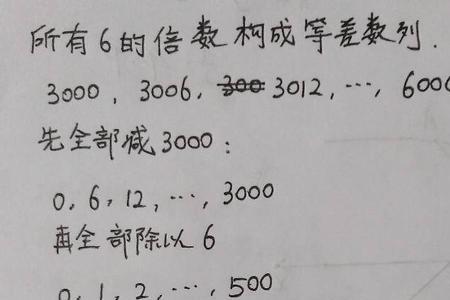 所有6的倍数构成等差数列.
3000, 3006, 3̶0̶0̶ 3012, ⋯, 6000
先全部减3000:
0, 6, 12, ⋯, 3000
再全部除以6
0, 1, 2, ⋯, 500